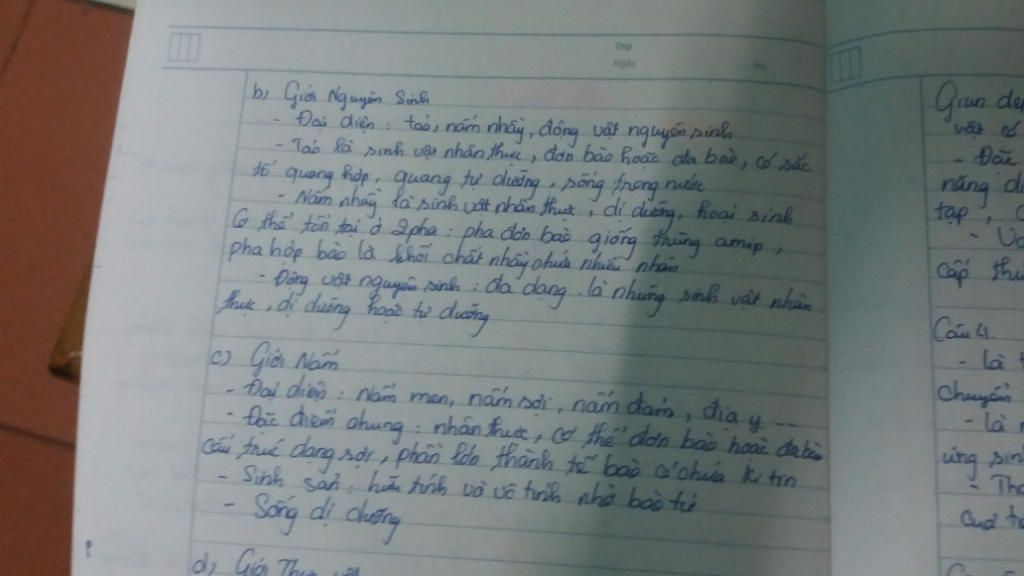 Thứ
Ngày No.
b) Giới Nguyên Sinh
- Đại diện : tảo, nấm nhầy, động vật nguyên sinh
- Tảo là sinh vật nhân thực, đơn bào hoặc đa bào, có sắc
tố quang hợp, quang tự dưỡng, sống trong nước
- Nấm nhầy là sinh vật nhân thực, dị dưỡng, hoại sinh
Cơ thể tồn tại ở 2 pha : pha đơn bào giống trùng amip,
pha hợp bào là khối chất nhầy chứa nhiều nhân
- Động vật nguyên sinh : đa dạng. là những sinh vật nhân
thực, dị dưỡng hoặc tự dưỡng
c) Giới Nấm
- Đại diện : Nấm men, nấm sợi, nấm đảm, địa y ...
- Đặc điểm chung : nhân thực, cơ thể đơn bào hoặc đa bào
cấu trúc dạng sợi, phần lớn thành tế bào có chứa kitin
- Sinh sản : hữu tính và vô tính nhờ bào tử
- Sống dị dưỡng
d) Giới Thực vật
Giun dẹp
vật có
- Đặc
năng di
tạp,
cấp thụ
Câu 4.
- là
chuyển
- là
ứng sin